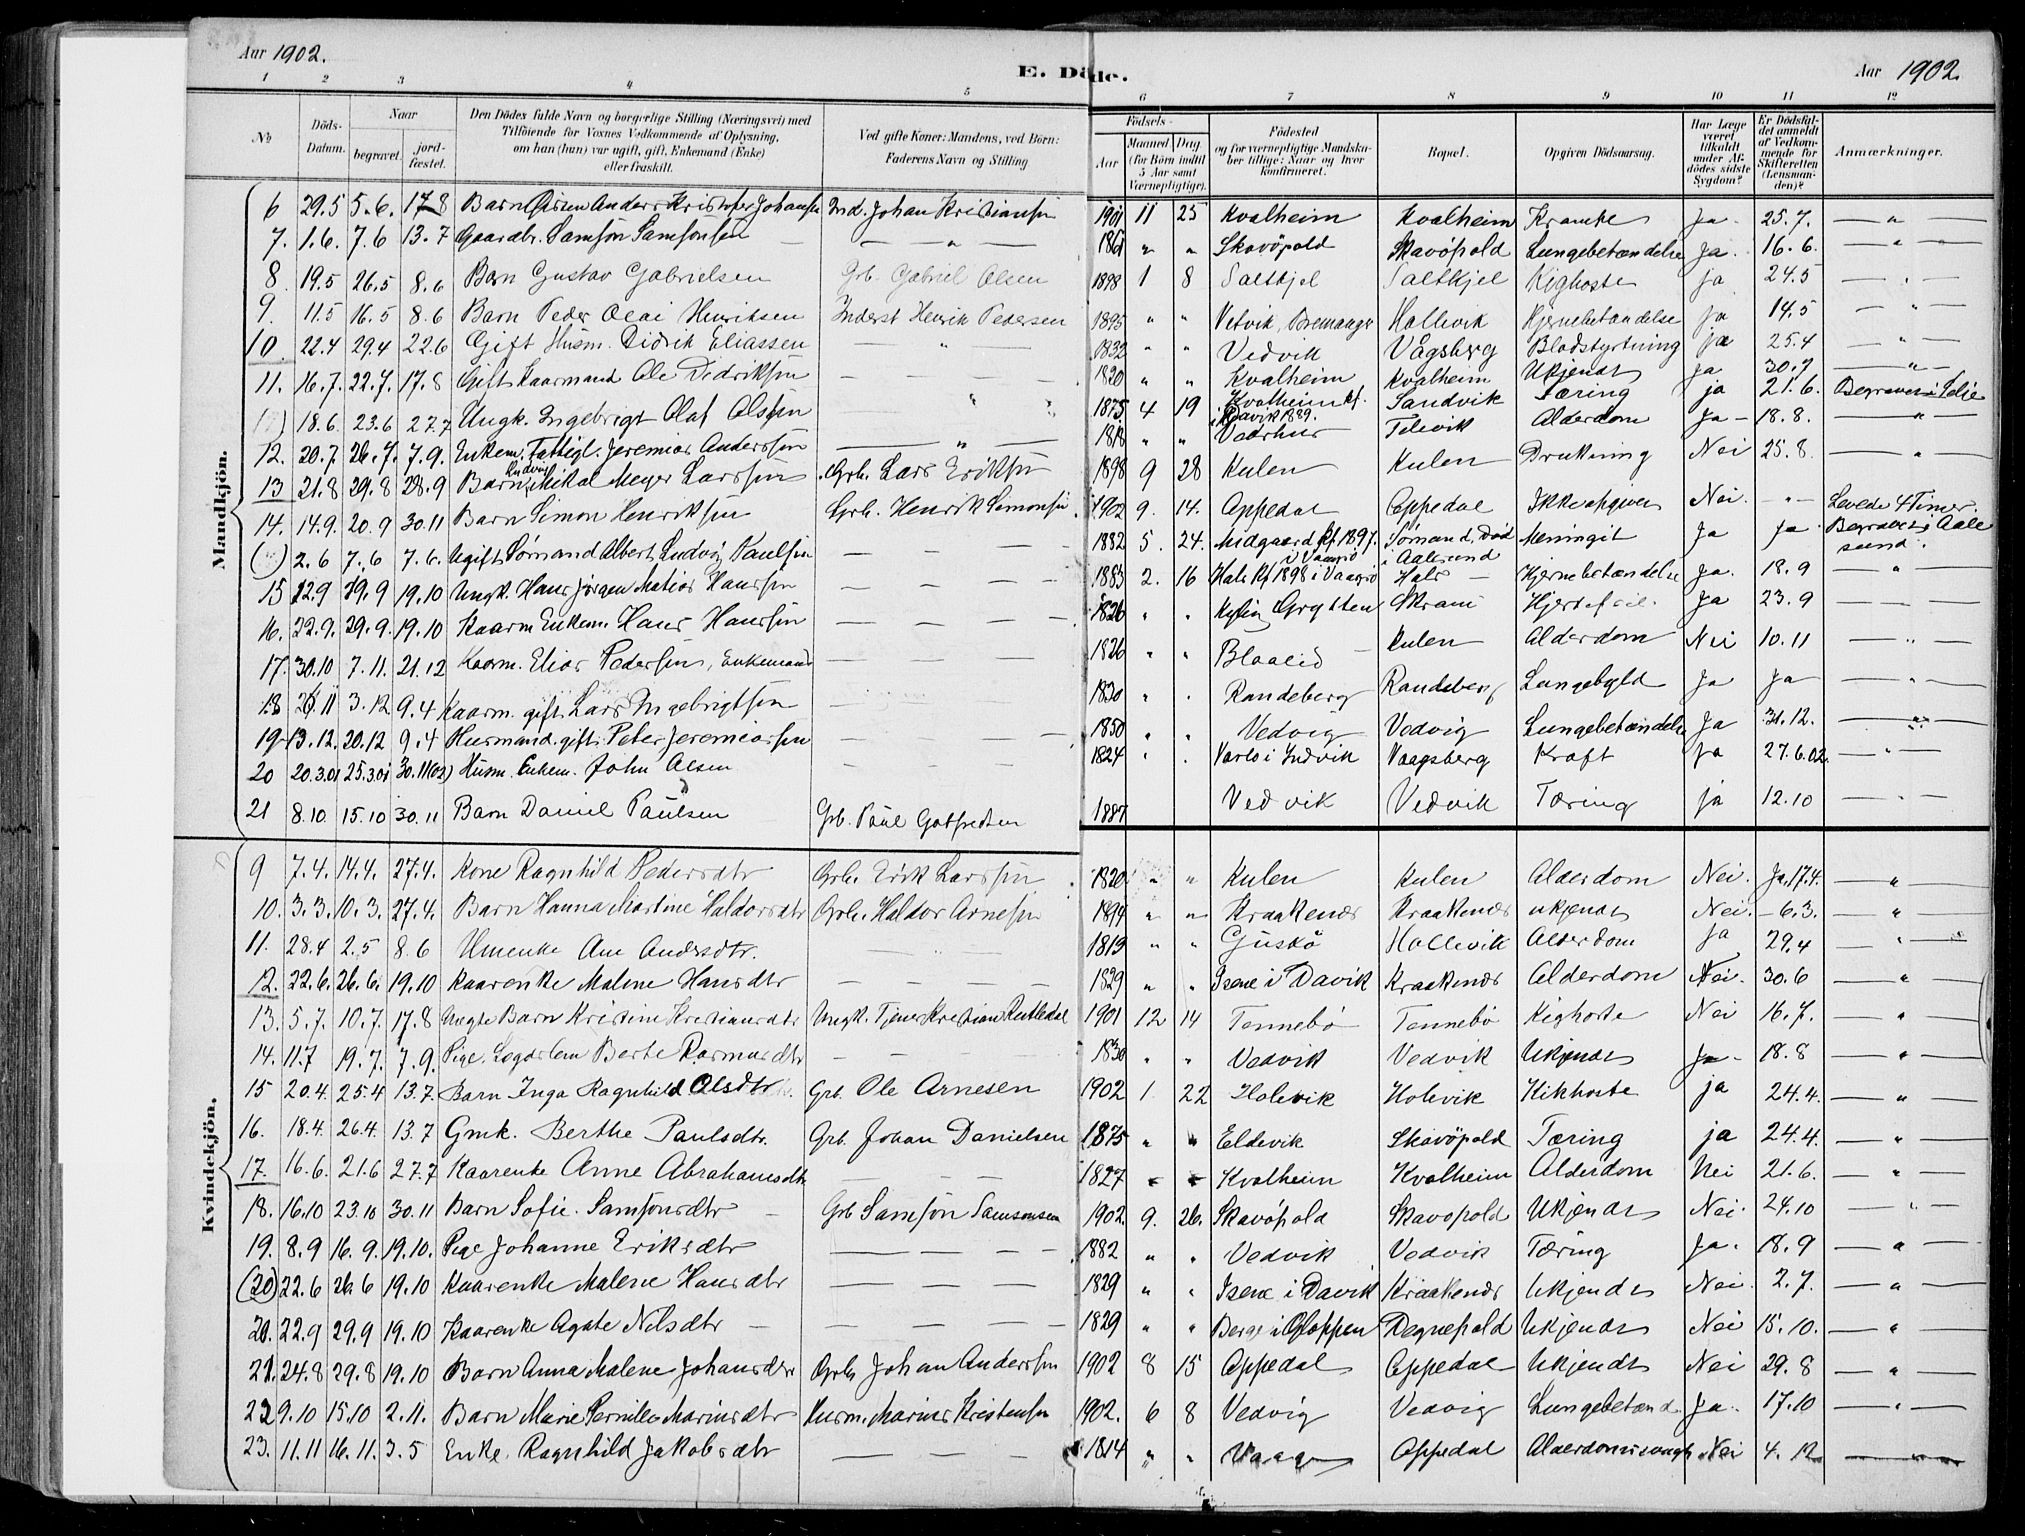 Aar 1902.
E. Döde.
Aar 1902.
1 2 3 4 5 6 7 8 9 10 11 12
No
Döds-Datum.
Naar
begravet.
jord-fæstet.
Den Dödes fulde Navn og borgerlige Stilling (Næringsvei) med
Tilföiende for Voxnes Vedkommende af Oplysning,
om han (hun) var ugift, gift, Enkemand (Enke)
eller fraskilt.
Ved gifte Koner: Mandens, ved Börn:
Faderens Navn og Stilling
Födsels-
Aar
Maaned Dag
(for Börn indtil
5 Aar samt
Værnepligtige).
Födested
og for værnepligtige Mandska-
ber tillige: Naar og hvor
konfirmeret.
Bopæl.
Opgiven Dödsaarsag.
Har Læge
været
tilkaldt
under Af-
dödes sidste
Sygdom?
Er Dödsfal-
det anmeldt
af Vedkom-
mende for
Skifteretten
(Lensman-
den)?
Anmærkninger.
Mandkjön.
6 29.5 5.6. 17.8 Barn Anders Kristofer Johansen Ind. Johan Kristiansen 1901 11 25 Kvalheim Kvalheim Krampe Ja. 25.7. — " —
7. 1.6. 7.6 13.7 Gaardbr. Samson Samsonsen — " — 1861 " " Skavöpold Skavöpold Lungebetændelse Ja. 16.6. — " —
8 19.5 26.5 8.6 Barn Gustav Gabrielsen Grb. Gabriel Olsen 1898 1 8 Saltkjel Saltkjel Kighoste ja 24.5 — " —
9. 11.5 16.5 8.6 Barn Peder Olai Henriksen Inderst Henrik Pedersen 1895 " " Vetvik, Bremanger Hollevik Hjernebetændelse ja 14.5 — " —
10. 22.4 29.4 22.6 Gift Husm. Didrik Eliassen — " — 1832 " " Vedvik Vågsberg Blodstyrtning ja 25.4 — " —
11. 16.7. 22.7. 17.8 Gift Kaarmand Ole Didriksen — 1820 " " Kvalheim Kvalheim Ukjendt Ja 30.7 — " —
18.6. 23.6 27.7 Ungk. Ingebrigt Olaf Olsen — " — 1875 4 19 Kvalheim kf. i Davik 1889. Sandvik Tæring ja 21.6. Begraven i Selje
12. 20.7. 26.7. 7.9. Enkem. Fattigl. Jeremias Anderssen — " — 1818 " " Vedvik Alderdom Ja - 18.8. — " —
13 21.8 29.8 28.9 Barn Ludvig Mikal Meyer Larssen Grb. Lars Eriksen 1898 9 28 Kulen Kulen Drukning Nei 25.8. — " —
14. 14.9. 20.9 30.11 Barn Simon Henriksen Grb. Henrik Simonsen 1902 9. 14. Oppedal Oppedal Ikke opgiven Nei. - " - Levede 4 Timer.
2.6 7.6 7.6. Ugift Sømand Albert Ludvig Paulsen — 1882 5. 24. Midgaard Kf 1897. i Vaagsö Sømand, Død i Aalesund Meningit Ja Ja Begravet i Aalesund.
15 12.9 19.9 19.10 Ungk. Hans Jörgen Matias Hanssen — 1883 2. 16 Hals Kf 1898 i Vaagsö Hals — Hjernebetændelse Ja. 18.9 — " —
16. 22.9. 29.9. 19.10 Kaarm. Enkem. Hans Hanssen — 1826 " " Gryten Skram Ja 23.9 —
17. 30.10 7.11. 21.12 Kaarm. Elias Pedersen, Enkemand — 1826 " " Blaalid — Kulen Alderdom Nei 10.11 — " —
18 26.11 3.12 9.4 Kaarm. gift Lars Ingebrigtsen — 1830 " " Randeberg Randeberg Lungebyld Ja Ja — " —
19 13.12. 20.12 9.4 Husmand. gift. Peter Jeremiassen — 1850 " " Vedvig Vedvig Lungebetændelse Ja 31.12. — " —
20 20.3.01 25.3.01 30.11(02) Husm. Enkem. John Olsen — 1824 " " i Indvik Vaagsberg Kræft ja 27.6.02. — " —
21 8.10. 15.10 30.11 Barn Daniel Paulsen Grb. Paul Gotfredsen 1887 Vedvik Vedvik Tæring ja 12.10 — " —
Kvindekjön.
9 7.4. 14.4. 27.4. Kone Ragnhild Pedersdtr Grb. Erik Larssen 1820 " " Kulen Kulen Alderdom Nei. Ja. 17.4. — " —
10. 3.3. 10.3. 27.4. Barn Hanna Martine Haldorsdtr Grb. Haldor Arnesen 1894 " " Kraakenæs Kraakenæs ukjendt Nei. - 6.3. — " —
11. 28.4 2.5 8.6 Ane Andersdtr. — 1819 " " Guskö Hollevik Alderdom ja 29.4 — " —
12. 22.6. 26.6. 19.10 Kaarenke Malene Hansdtr — 1829 " " Isene i Davik Kraakenæs Alderdom Nei. 30.6 — " —
13. 5.7. 10.7. 17.8 Uægte Barn Kristine Kristiansdtr Ungk. Tjener Kristian Rutledal 1901 12 14 Tennebö Tennebö Kighoste Nei 16.7. — " —
14. 11.7 19.7. 7.9. Pige. Lægdslem Berte Rasmusdtr — 1830 " " Vedvik Vedvik Ukjendt Ja - 18.8 — " —
15 20.4. 25.4 13.7. Barn Inga Ragnhild Olsdtr. Grb. Ole Arnesen 1902 1. 22 Holevik Holevik Kikhoste ja 24.4. — " —
16. 18.4. 26.4. 13.7 Gmk. Berthe Paulsdtr. Grb. Johan Danielsen 1875 " " Eldevik Skavöpold Tæring ja 24.4. — " —
17. 16.6. 21.6 27.7 Kaarenke Anne Abrahamsdtr — 1827 " " Kvalheim Kvalheim Alderdom Nei 21.6. — " —
18. 16.10 23.10 30.11 Barn Sofie Samsonsdtr - Grb Samson Samsonsen 1902. 9. 26. Skavöpold Skavöpold Ukjendt Nei. 24.10 — " —
19. 8.9 16.9. 19.10. Pige Johanne Eriksdtr — 1882 " " Vedvik Vedvik Tæring Ja. 18.9 — " —
(20) 22.6 26.6 19.10 Kaarenke Malene Hansdtr — 1829 " " Isene i Davik Kraakenæs Ukjendt Nei. 2.7. — " —
20. 22.9 29.9 19.10 Kaarenke Agate Nilsdtr — 1829 " " Berge i Gloppen Degnepold Ukjendt Nei 15.10. — " —
21. 24.8 29.8 19.10 Barn Anna Malene Johansdtr Grb. Johan Anderssen 1902 8 15 Oppedal Oppedal Ukjendt Nei 29.8 — " —
22 9.10 15.10 2.11. Barn Marie Pernille Mariusdtr Husm. Marius Kristensen 1902. 6 8 Vedvig Vedvig Lungebetænd. Ja. 17.10 — " —
23. 11.11 16.11. 3.5 Enke. Ragnhild Jakobsdtr — 1814 " " Vaag Oppedal Alderdomssvagh. Nei 4.12 — " —